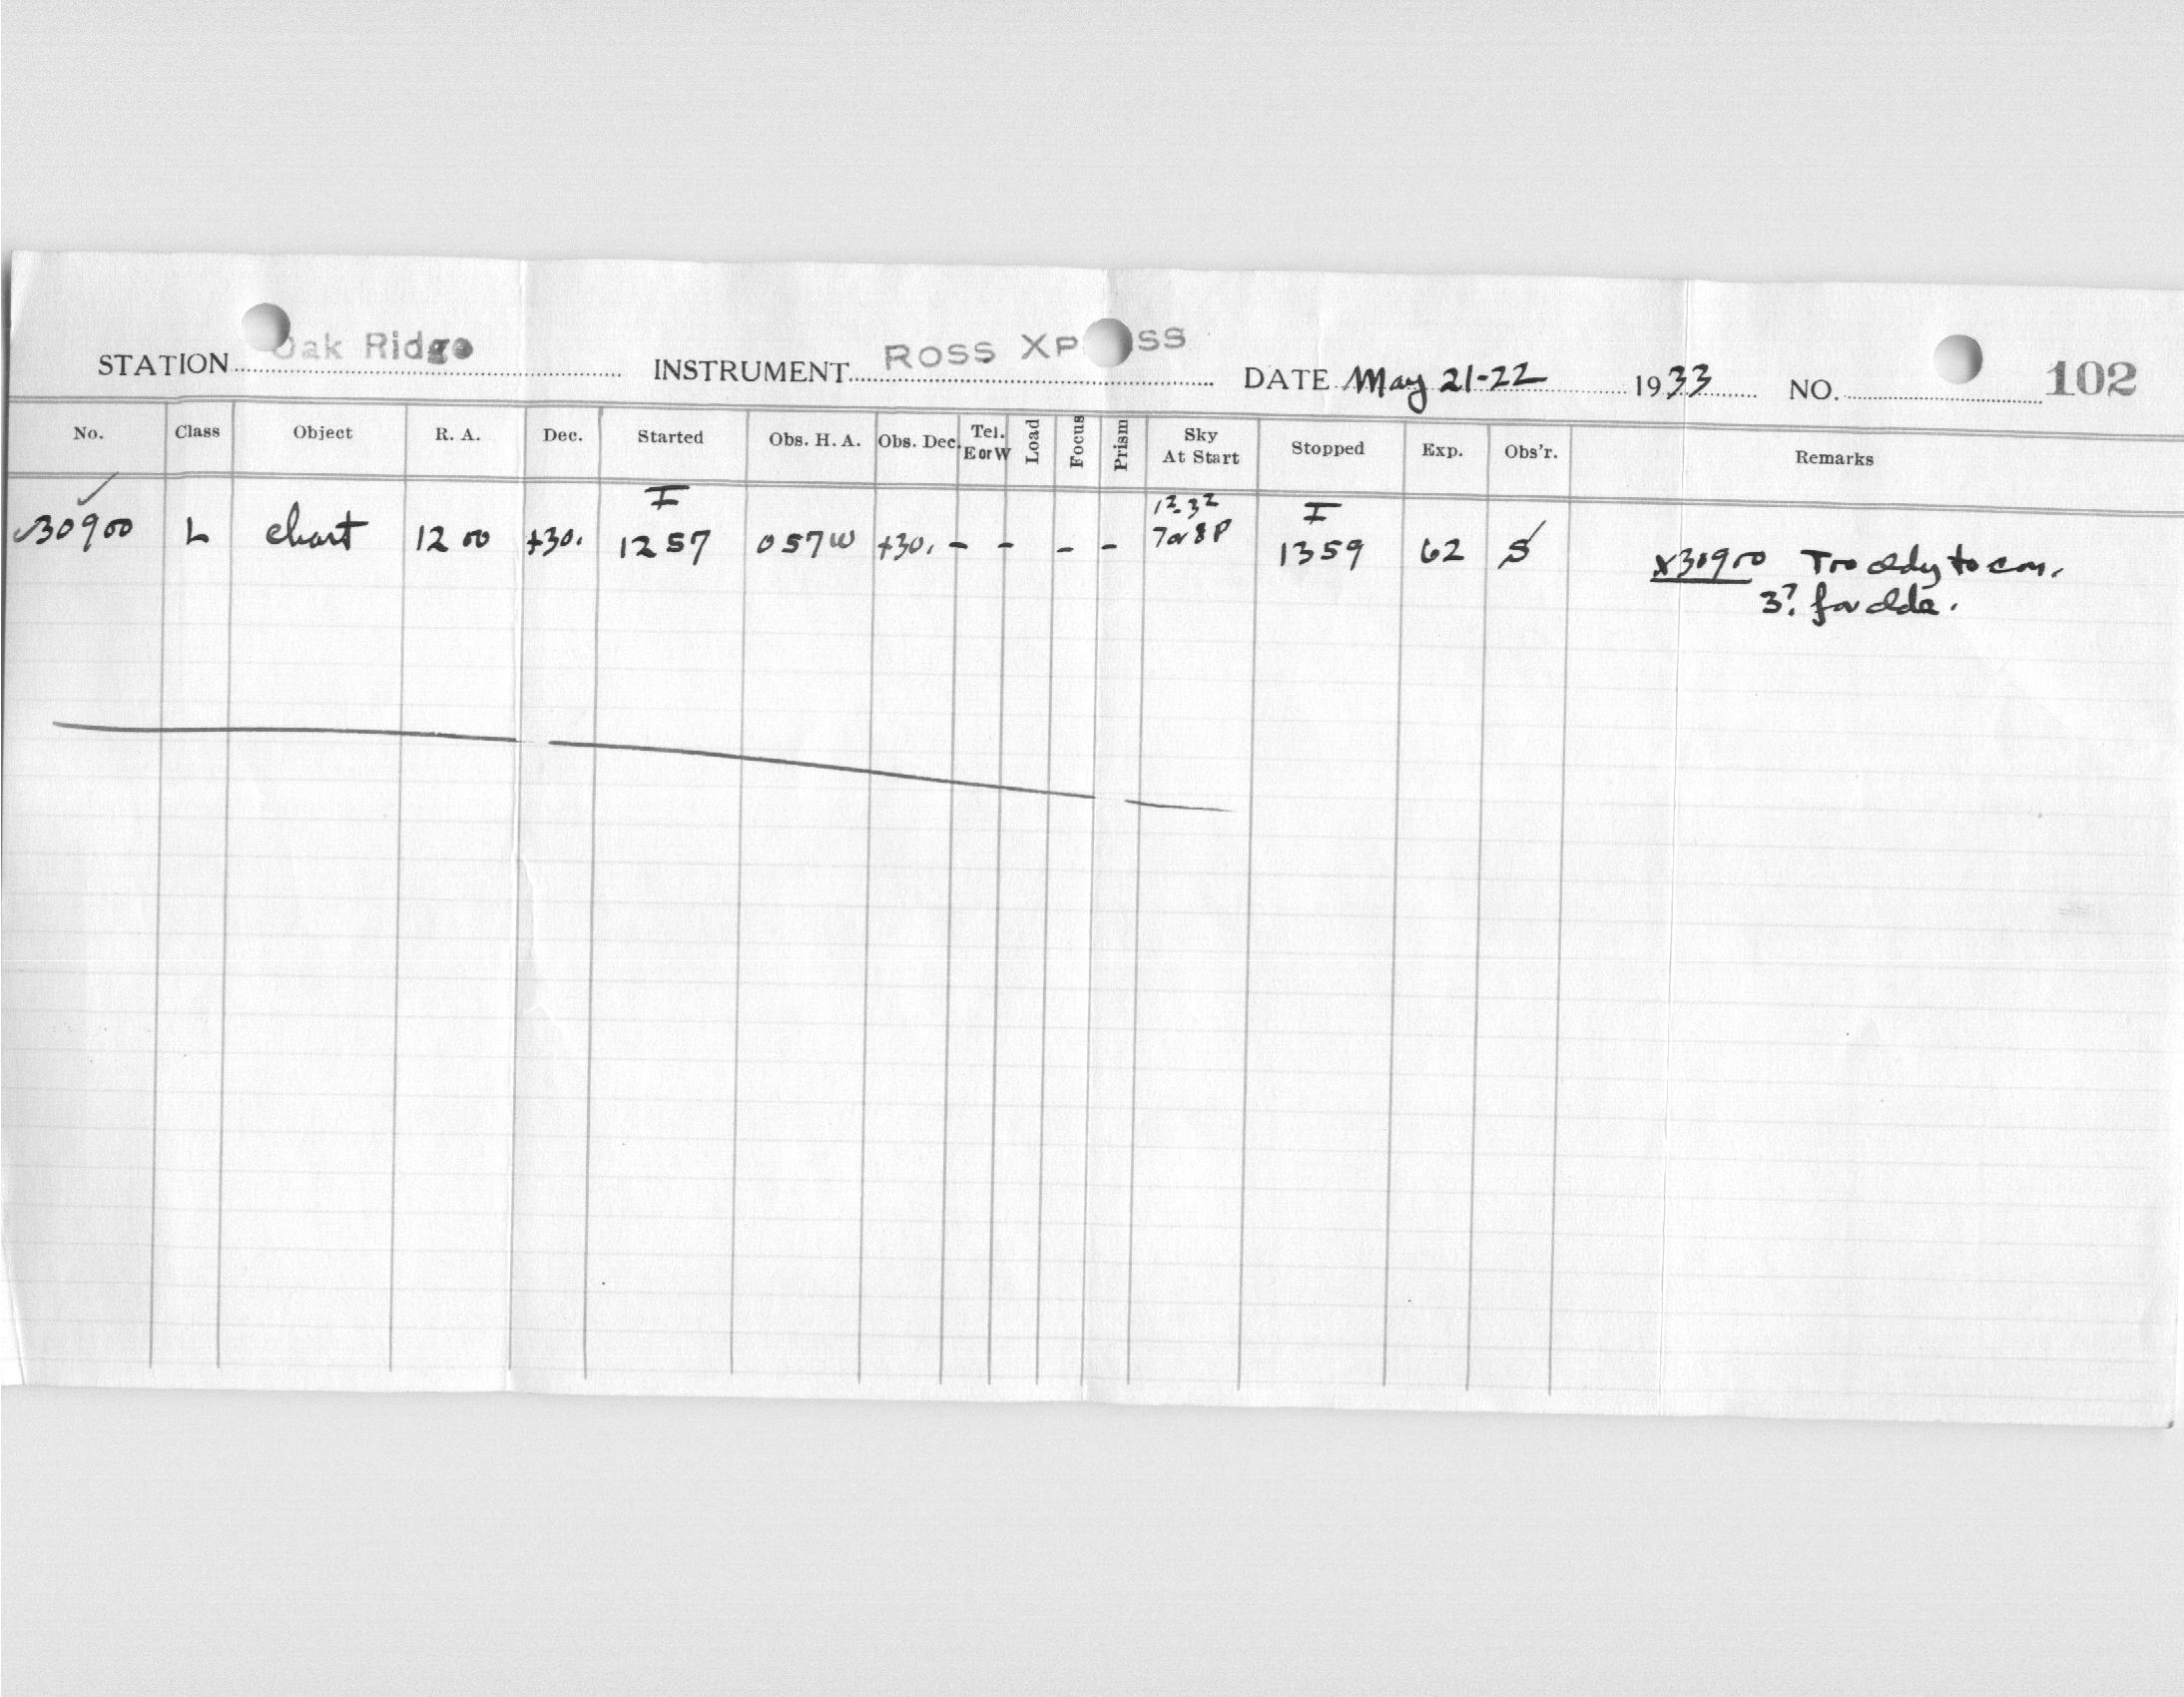 STATION Oak Ridge INSTRUMENT ROSS XP SS DATE May 21-22 1933 NO. 102
No. Class Object R. A. Dec. Started Obs. H. A. Obs. Dec. Tel. E or W Load Focus Prism Sky At Start Stopped Exp. Obs'r. Remarks
I 12-32 I
30900 L chart 12 00 +30. 1257 057W +30. - - - - 7 or 8 P 1359 62 S X30900 Too cldy to con.
3? for clds.